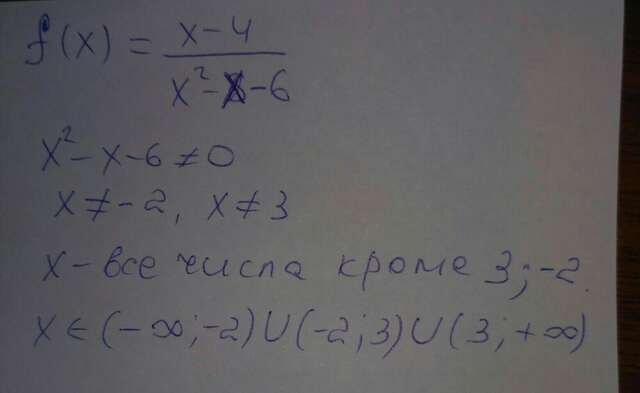 f(x) = (x-4)/(x²-x-6)
x²-x-6≠0
x≠-2, x≠3
x-все числа кроме 3;-2.
x∈(-∞;-2)∪(-2;3)∪(3;+∞)